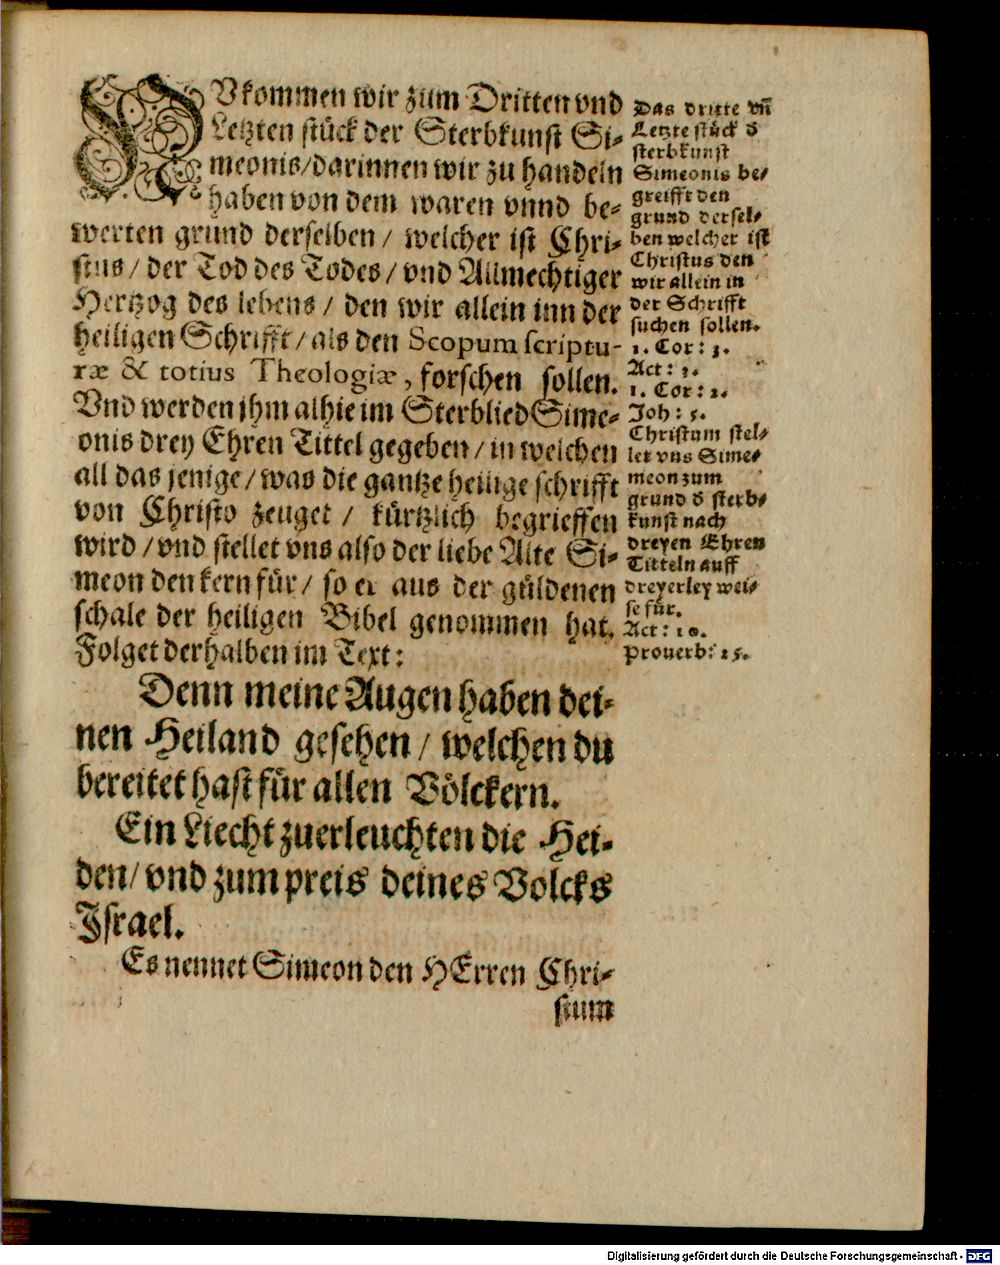 NUkommen wir zum Dritten vnd
Letzten stück der Sterbkunst Si-
meonis/darinnen wir zu handeln
haben von dem waren vnnd be-
werten grund derselben/ welcher ist Chri-
stus/ der Tod des Todes/ vnd Allmechtiger
Hertzog des lebens/ den wir allein inn der
heiligen Schrifft/ als den Scopum scriptu-
ræ & totius Theologiæ, forschen sollen.
Vnd werden ihm alhie im Sterblied Sime-
onis drey Ehren Tittel gegeben/ in welchen
all das jenige/ was die gantze heilige schrifft
von Christo zeuget/ kürtzlich begrieffen
wird/ vnd stellet vns also der liebe Alte Si-
meon den kern für/ so er aus der güldenen
schale der heiligen Bibel genommen hat.
Folget derhalben im Text:
Denn meine Augen haben dei-
nen Heiland gesehen/ welchen du
bereitet hast für allen Völckern.
Ein Liecht zuerleuchten die Hei-
den/ vnd zum preis deines Volcks
Israel.
Es nennet Simeon den HErren Chri-
stum
Das dritte vñ
Letzte stück d
sterbkunst
Simeonis be-
greifft den
grund dersel-
ben welcher ist
Christus den
wir allein in
der Schrifft
suchen sollen.
1. Cor: 3.
Act: 3.
1. Cor: 2.
Joh: 5.
Christum stel-
let vns Sime-
meon zum
grund d sterb-
kunst nach
dreyen Ehren
Titteln auff
dreyerley wei-
se für.
Act: 10.
Proverb: 25.
Digitalisierung gefördert durch die Deutsche Forschungsgemeinschaft - DFG